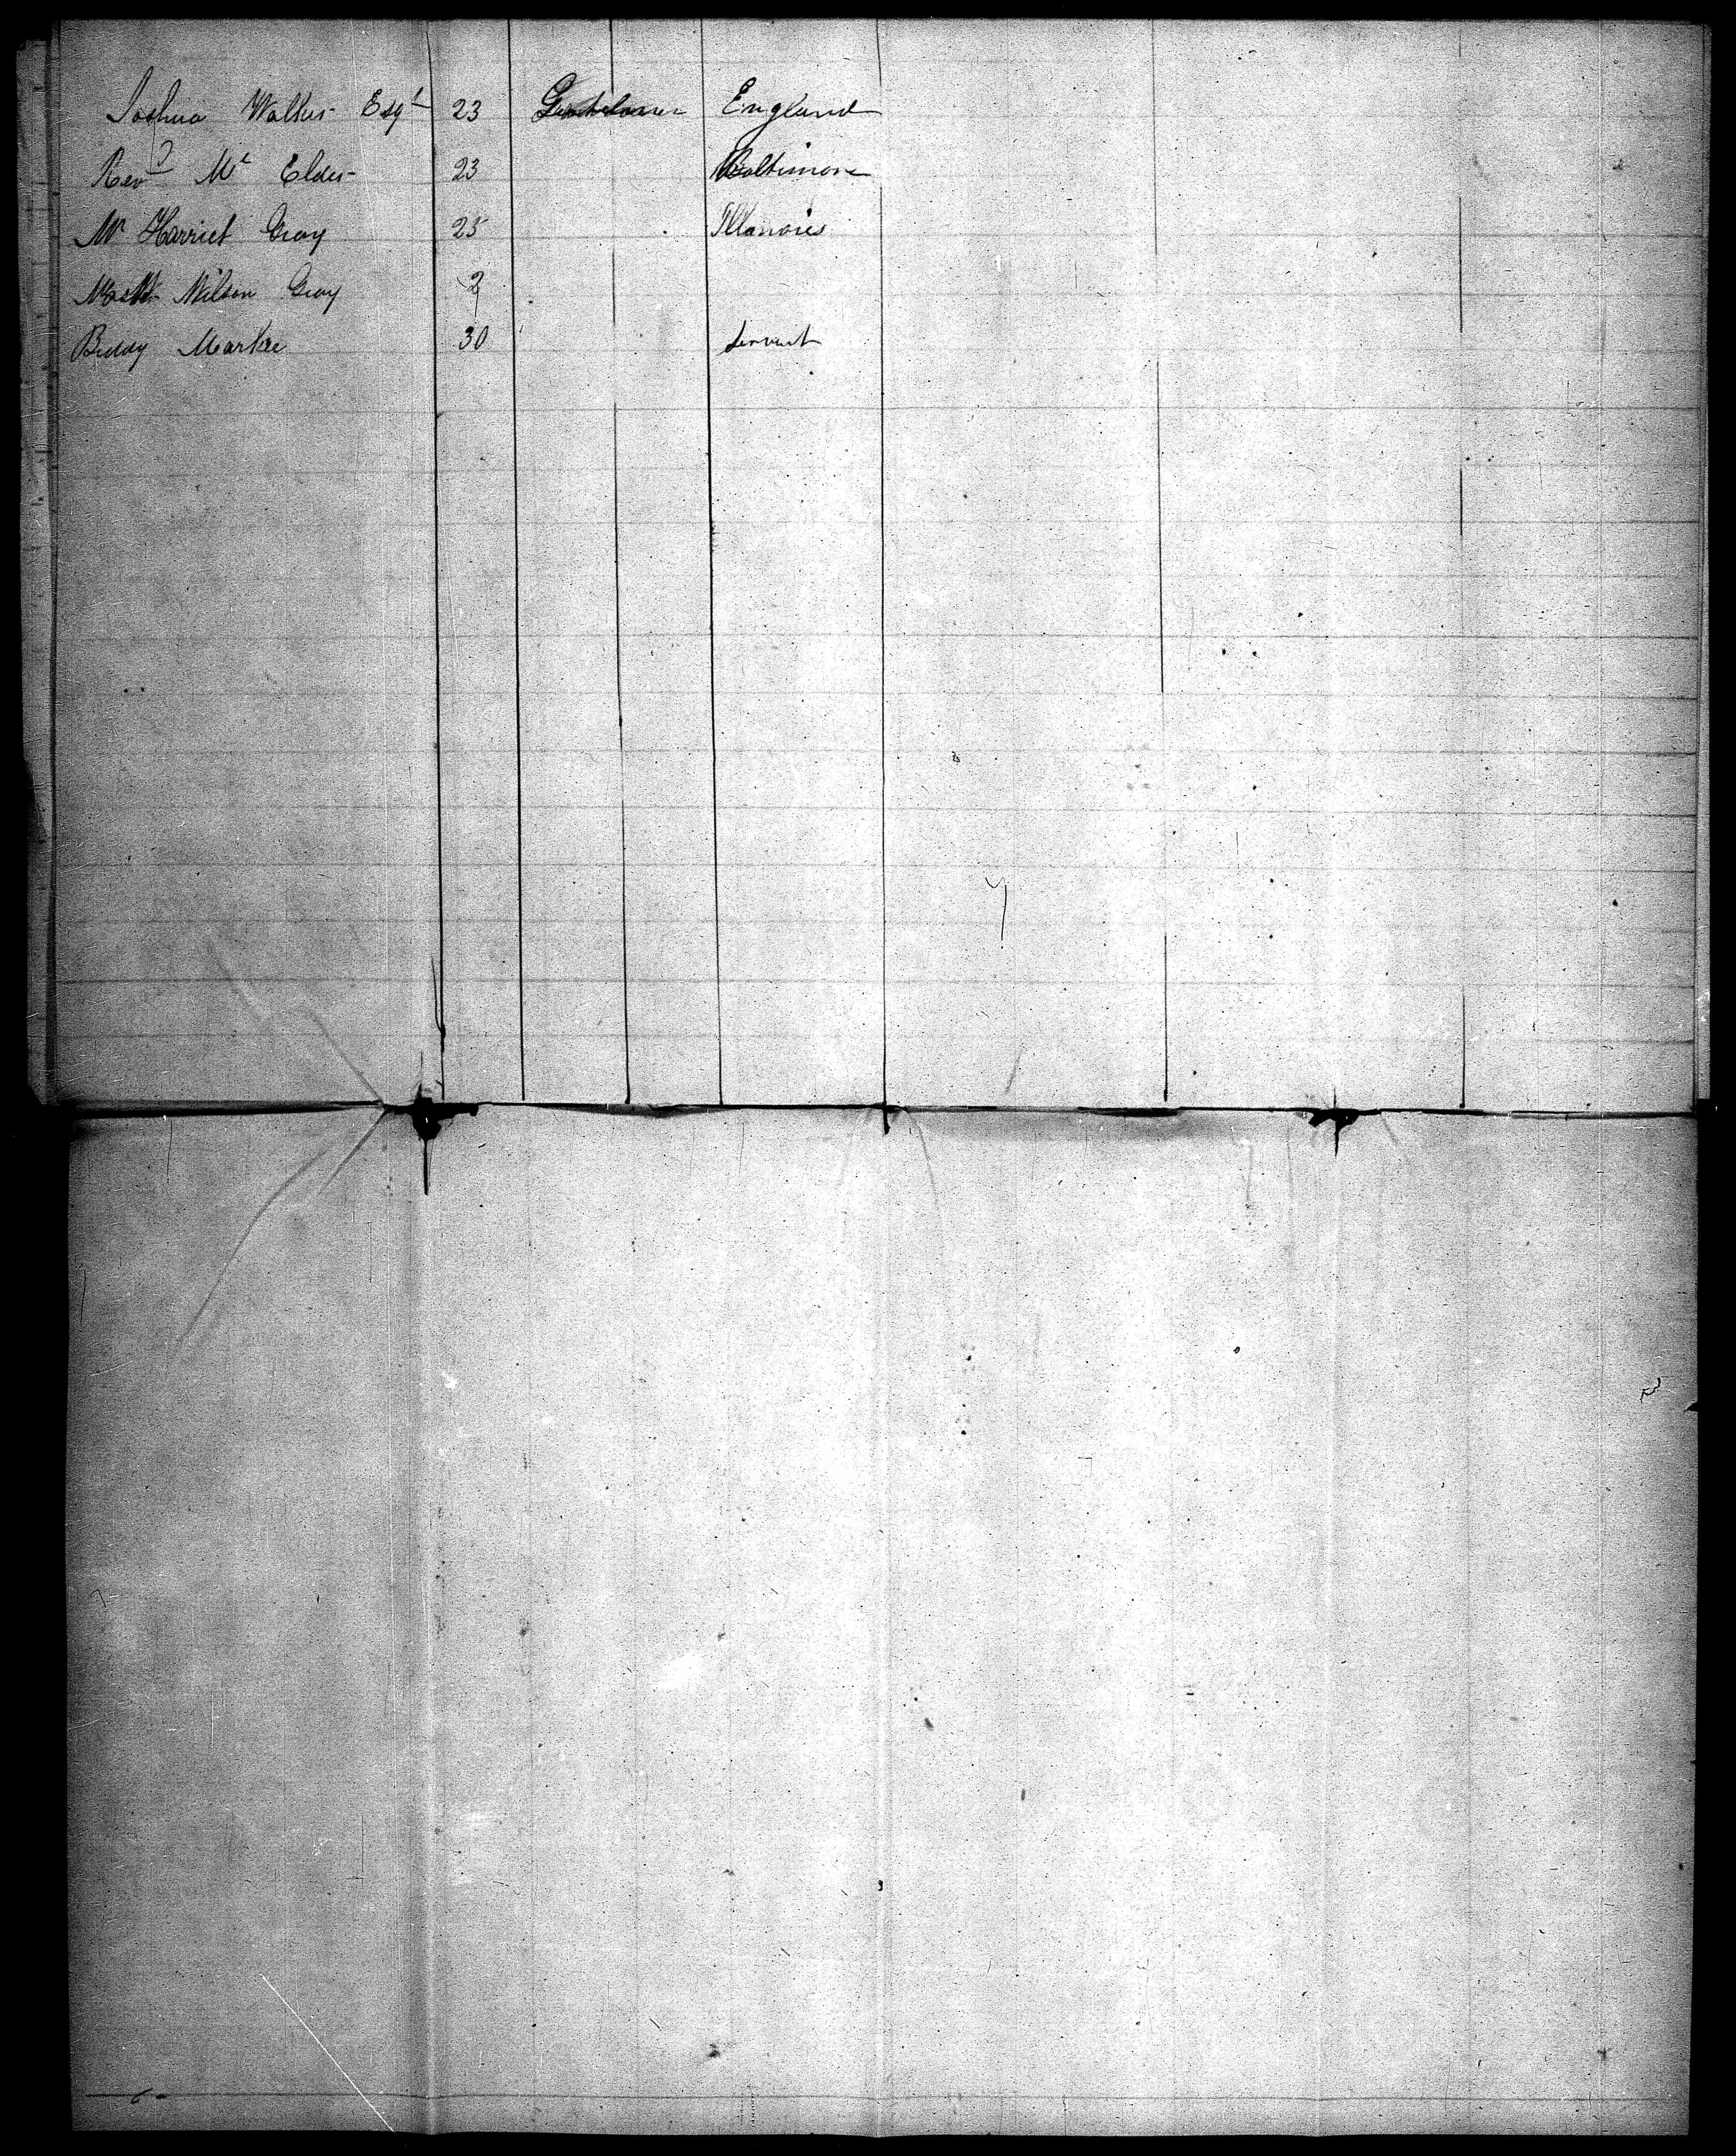 Joshua Walker Esqr 23 Gentleman England
Revd Mr Elder 23 Baltimore
Mr Harriet Gray 25 Illanoies
Wilson Gray 2
Biddy 30 Servant